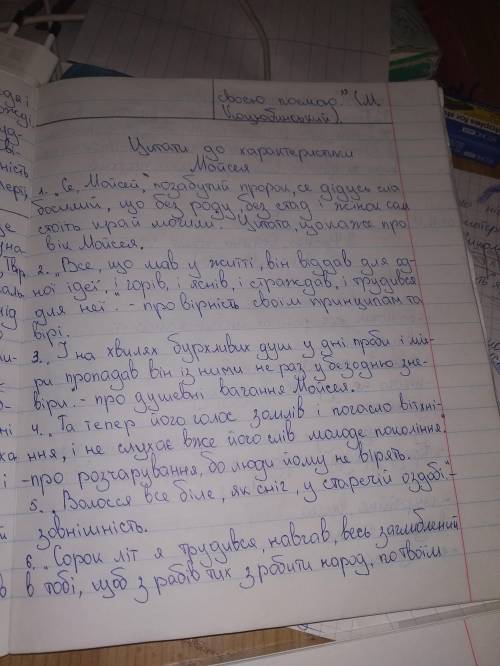 своєю поемою." (М.
Коцюбинський).
Цитати до характеристики
Мойсея
1. „Се Мойсей, позабутий пророк, се дідусь сла
босилий, що без роду, без стад і жінок сам
стоїть край могили. Цитата, що каже про
вік Мойсея.
2. „Все, що мав у житті, він віддав для од-
ної ідеї, і горів, і яснів, і страждав, і трудився
для неї". - про вірність своїм принципам та
вірі.
3. „І на хвилях бурхливих душ у дні проби і мі-
ри пропадав він із ними не раз у безодню зне-
віри". - про душевні вагання Мойсея.
4. „Та тепер його голос зомлів і погасло вітхні-
ння, і не слухає вже його слів молоде покоління"
- про розчарування, бо люди йому не вірять.
5. „Волосся все біле, як сніг, у старечій оздобі"-
зовнішність.
6. „Сорок літ я трудився, навчав, весь заглиблений
в тобі, щоб з рабів тих зробити народ, по твоїй